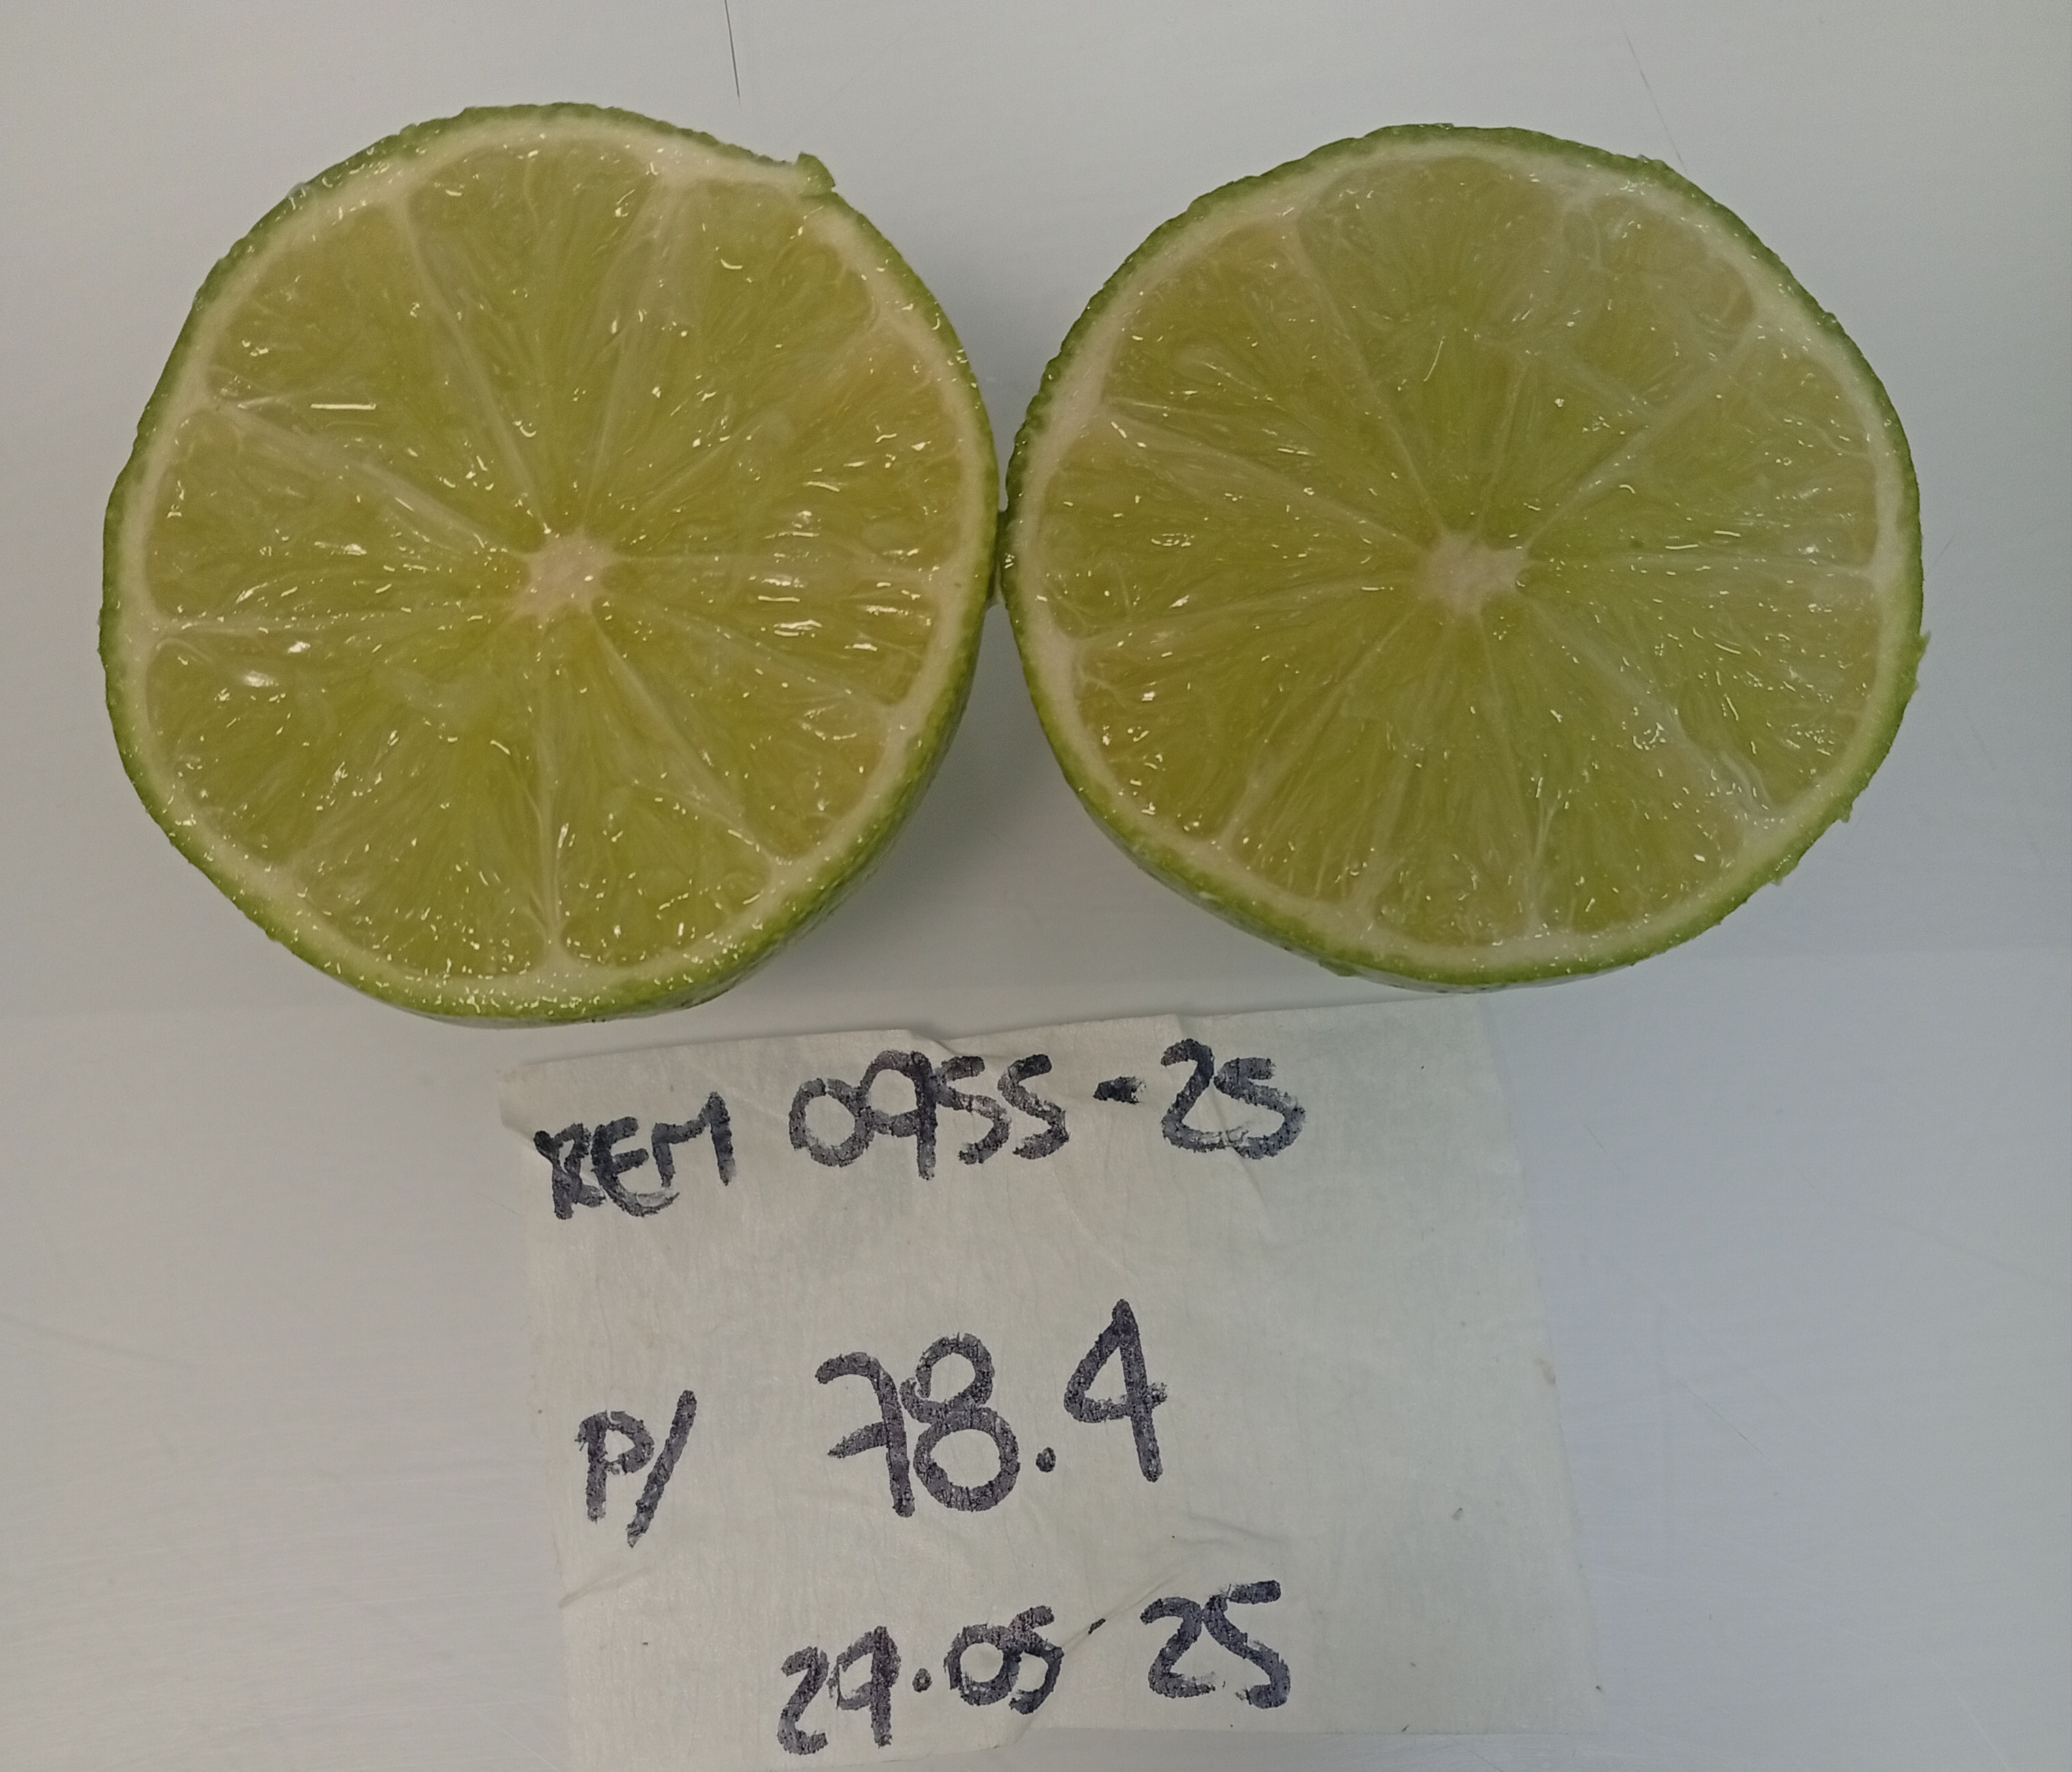 REM 0955-25
P/ 78.4
29.05-25